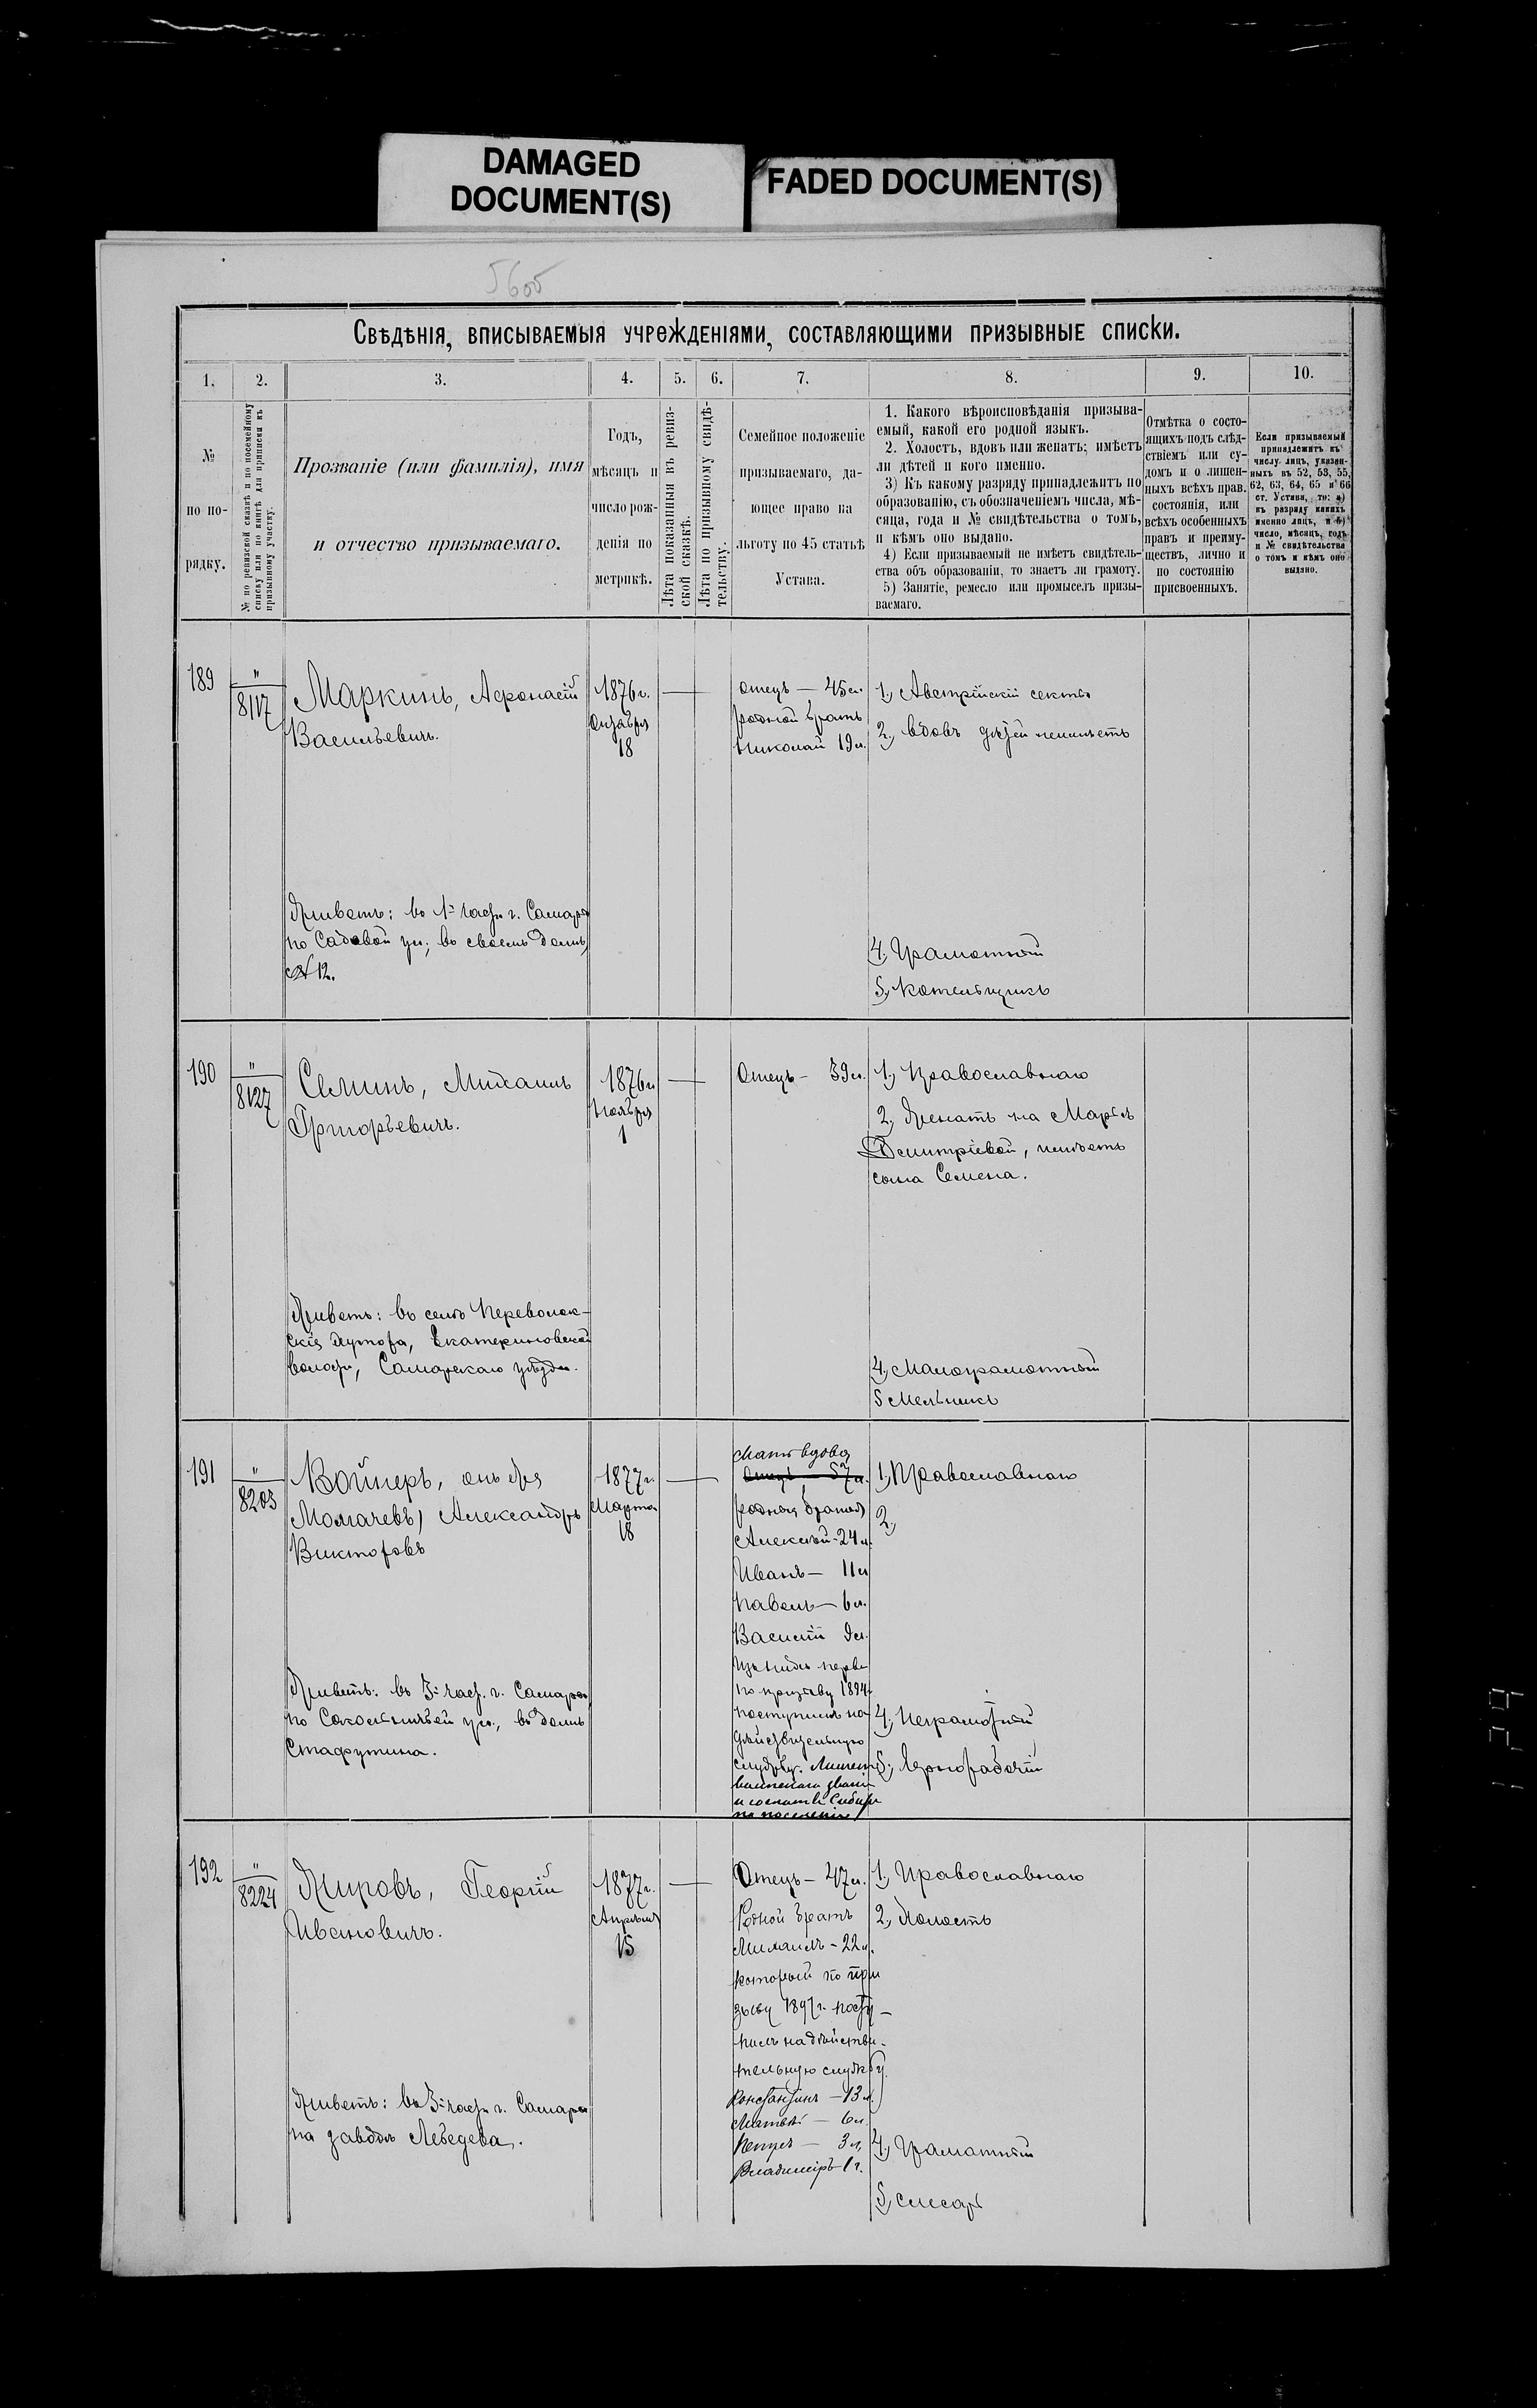 DAMAGED
DOCUMENT(S)
FADED DOCUMENT(S)
Свѣдѣнія, вписываемыя учрежденіями, составляющими призывные списки.
1.
2.
3.
4.
5.
6.
7.
8.
9.
10.
№
по по-
рядку.
№ по ревизской сказкѣ и по посемейному
списку или по книгѣ для приписки къ
призывному участку.
Прозваніе (или фамилія), имя
и отчество призываемаго.
Годъ,
мѣсяцъ и
число рож-
денія по
метрикѣ.
Лѣта показанныя въ ревиз-
ской сказкѣ.
Лѣта по призывному свидѣ-
тельству.
Семейное положеніе
призываемаго, да-
ющее право на
льготу по 45 статьѣ
Устава.
1. Какого вѣроисповѣданія призыва-
емый, какой его родной языкъ.
2. Холостъ, вдовъ или женатъ; имѣетъ
ли дѣтей и кого именно.
3) Къ какому разряду принадлежитъ по
образованію, съ обозначеніемъ числа, мѣ-
сяца, года и № свидѣтельства о томъ,
и кѣмъ оно выдано.
4) Если призываемый не имѣетъ свидѣтель-
ства объ образованіи, то знаетъ ли грамоту.
5) Занятіе, ремесло или промыселъ призы-
ваемаго.
Отмѣтка о состо-
ящихъ подъ слѣд-
ствіемъ или су-
домъ и о лишен-
ныхъ всѣхъ прав.
состоянія, или
всѣхъ особенныхъ
правъ и преиму-
ществъ, лично и
по состоянію
присвоенныхъ.
Если призываемый
принадлежитъ къ
числу лицъ, указан-
ныхъ въ 52, 53, 55,
62, 63, 64, 65 и 66
ст. Устава, то: а)
къ разряду какихъ
именно лицъ, и б)
число, мѣсяцъ, годъ
и № свидѣтельства
о томъ и кѣмъ оно
выдано.
189
"
8117
Маркинъ, Афонасій
Васильевичъ.
1876 г.
Октября
18
Отецъ — 45 л.
родной братъ
Николай 19 л.
1, Австрійскій секты
2, вдовъ дѣтей неимѣетъ
Живетъ: въ 1й части г. Самары
по Садовой ул; въ своемъ домѣ,
№ 12.
4, Грамотный
5, Котельщикъ
190
"
8127
Семинъ, Михаилъ
Григорьевичъ.
1876 г.
Ноября
1
Отецъ - 59 л.
1, Православнаго
2, Женатъ на Марьѣ
Дмитріевой, имѣетъ
сына Семена.
Живетъ: въ селѣ Переволок-
скіе хутора, Екатериновской
волости, Самарскаго уѣзда.
4, Малограмотный
5 Мельникъ
191
"
8203
Войнеръ, онъ же
Молгачевъ) Александръ
Викторовъ
1877 г.
Марта
18
Мать вдова
Отецъ — 57 л.
родныя братья
Алексѣй - 24 л.
Иванъ — 11 л
Павелъ — 6 л.
Василій
Изъ нихъ перв.
по призыву 1894 г.
поступилъ на
дѣйствительную
службу. Лишенъ
воинскаго званія
и сосланъ въ Сибирь
на поселеніе
1, Православнаго
2,
Живетъ: въ 3й част. г. Самары,
по Сокольничьей ул., въ домѣ
4, Неграмотный
5, Чернорабочій
192
"
8224
Жировъ, Георгій
Ивановичъ.
1877 г.
Апрѣля
15
Отецъ — 47 л.
Родной братъ
Михаилъ - 22 л.
который по при
зыву 1897 г. посту-
пилъ на дѣйстви-
тельную службу.
Константинъ — 13 л.
Матвѣй — 6 л.
Петръ — 3 л,
Владиміръ — 1 г.
1, Православнаго
2, Холостъ
Живетъ: въ 3й части г. Самары
на заводѣ Лебедева.
4, Грамотный
5, слесарь
129